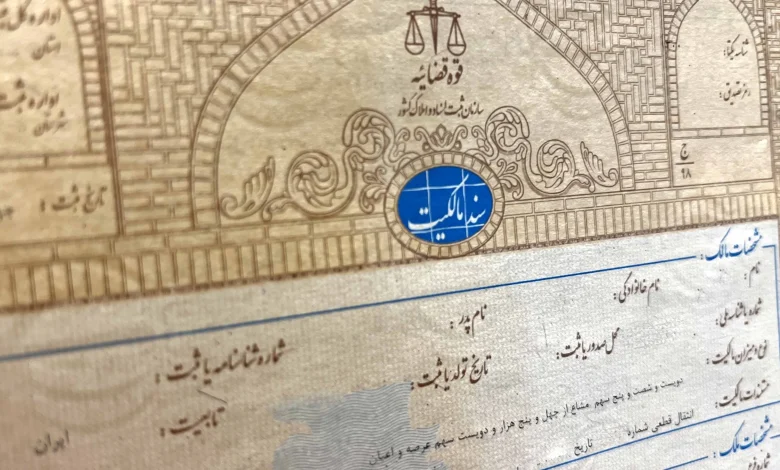 قوه قضائیه
سازمان ثبت اسناد و املاک کشور
اداره کل
استان
اداره ثبت
شهرستان
تاریخ ثبت :
شناسه یکتا:
رمز تصدیق:
ج
۹۸
سند مالکیت
مشخصات مالک :
نام :
نام خانوادگی :
نام پدر :
شماره شناسنامه یا ثبت :
شماره یا شناسه ملی :
محل صدور یا ثبت :
تاریخ تولد یا ثبت :
تابعیت :
ایران
نوع و میزان مالکیت :
دویست و شصت و پنج سهم مشاع از چهل و پنج هزار و دویست سهم عرصه و اعیان
مستندات مالکیت :
انتقال قطعی شماره
تاریخ
مشخصات مالک :